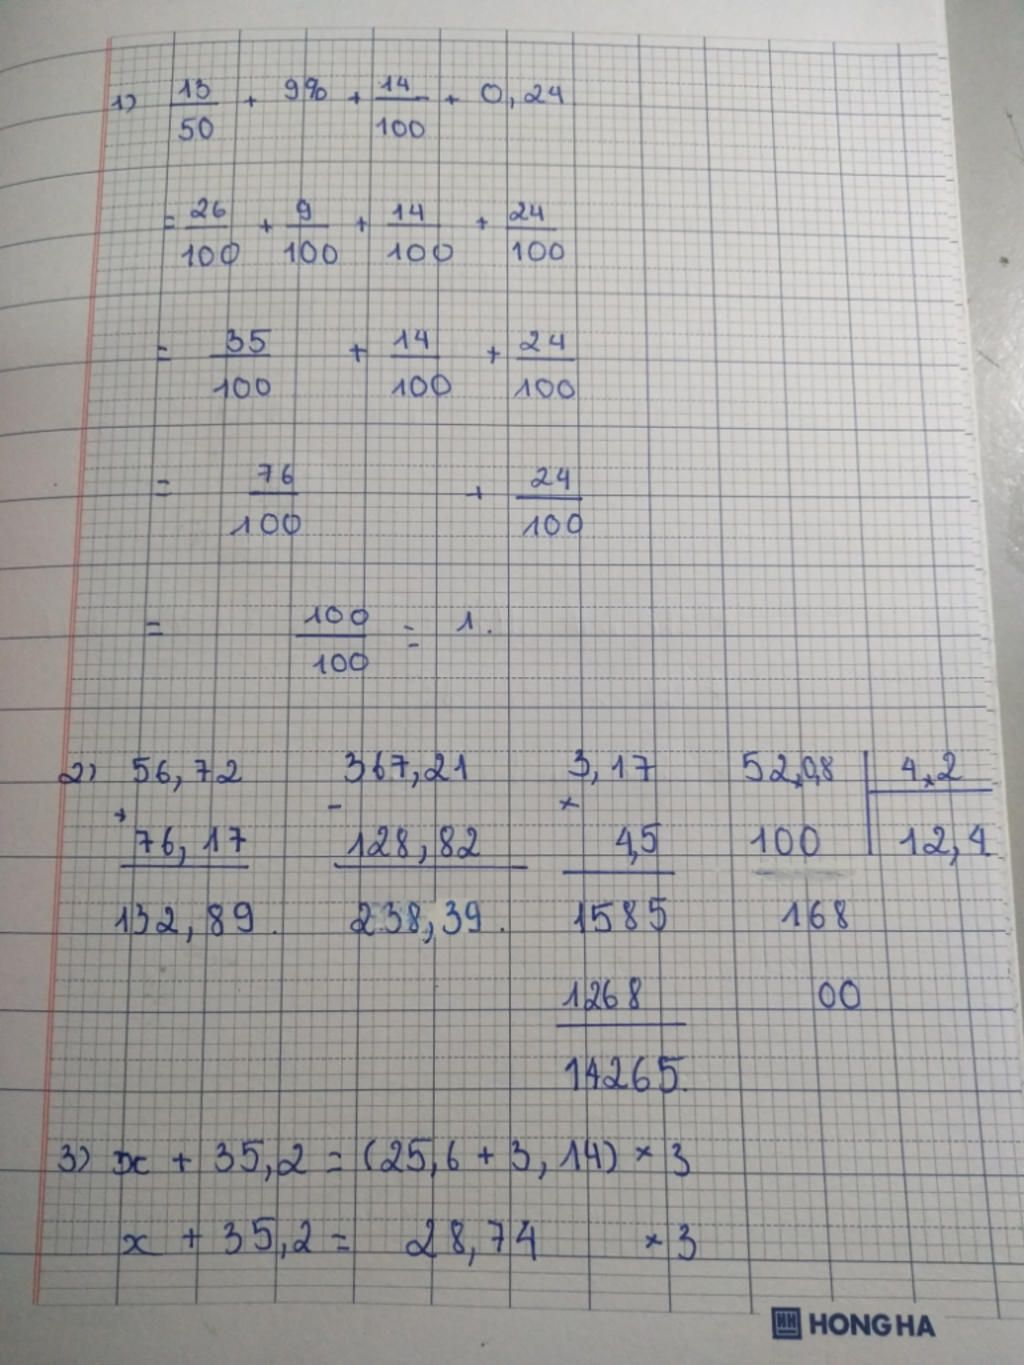 1) 13/50 + 9% + 14/100 + 0,24
= 26/100 + 9/100 + 14/100 + 24/100
= 35/100 + 14/100 + 24/100
= 76/100 + 24/100
= 100/100 = 1.
2) 56,72 367,21 3,17 52,08 4,2
+ - ×
76,17 128,82 4,5 100 12,4
132,89. 238,39. 1585 168
1268 00
14265.
3) x + 35,2 = (25,6 + 3,14) × 3
x + 35,2 = 28,74 × 3
HONG HA